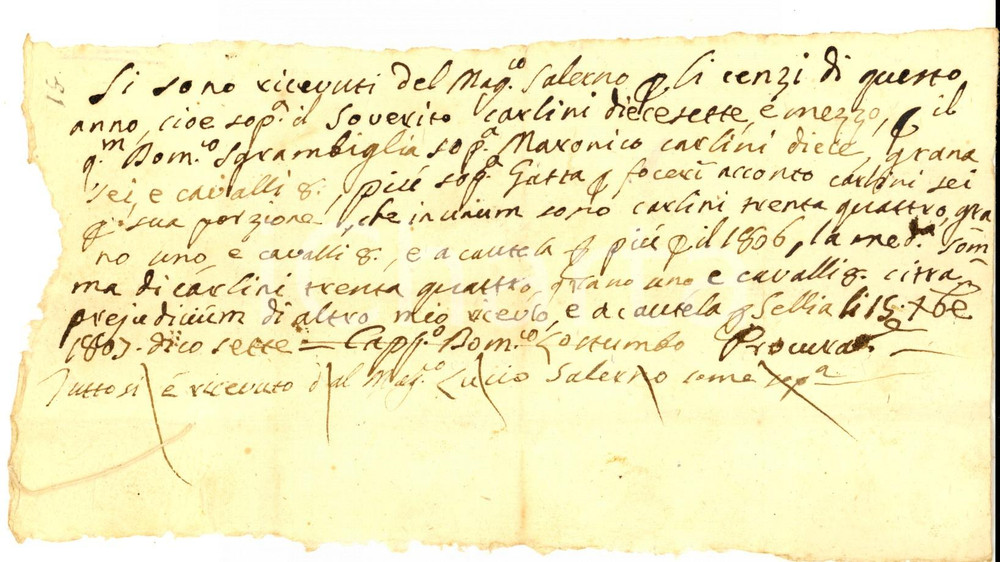 Si sono ricevuti del Mag.co Salerno p li cenzi di questo
anno, cioè sop.a il Soverito carlini diecesette, e mezzo, p il
q.m Dom.co Sgrambiglia sop.a Maronico carlini diece, grana
sei, e cavalli 8., più sop.a Gatta p acconto carlini sei
p sua porzione, che in unum sono carlini trenta quattro, gra
no uno e cavalli 8., e a cautela p più p il 1806, la med.ma som
ma di carlini trenta quattro, grano uno e cavalli 8. citra
prejudicium di altro mio ricevo, e a cautela Sellia li 15. 7bre
1807. dico sette = Dom.co Procura.re
Tuttosì è ricevuto dal Mag.co Salerno come sop.a
15